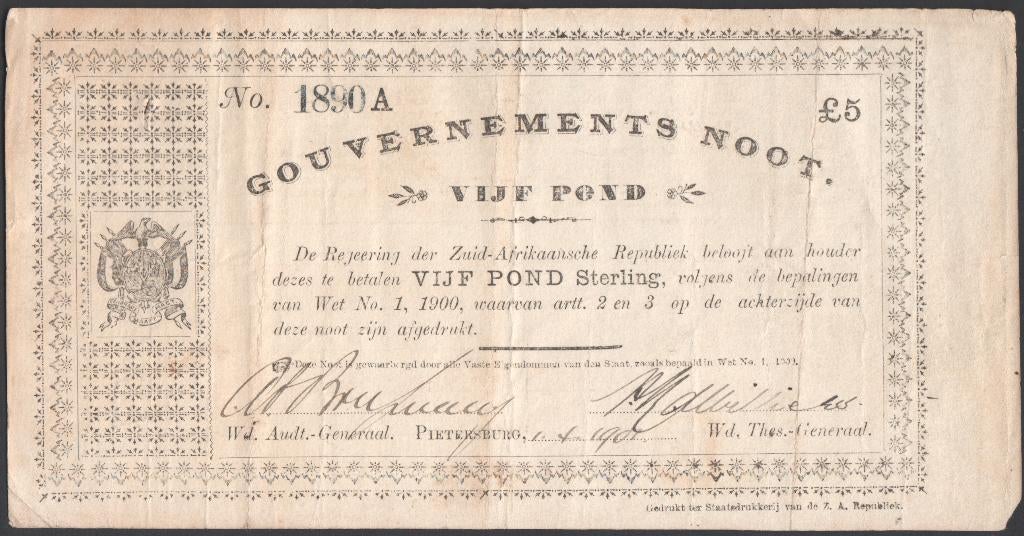 No. 1890 A
£5
GOUVERNEMENTS NOOT.
VIJF POND
De Regeering der Zuid-Afrikaansche Republiek belooft aan houder
dezes te betalen VIJF POND Sterling, volgens de bepalingen
van Wet No. 1, 1900, waarvan artt. 2 en 3 op de achterzijde van
deze noot zijn afgedrukt.
Deze Noot is gewaarborgd door alle Vaste Eigendommen van den Staat, zooals bepaald in Wet No. 1, 1900.
Wd. Audt.-Generaal. PIETERSBURG, 1.4.1901 Wd. Thes.-Generaal.
Gedrukt ter Staatsdrukkerij van de Z. A. Republiek.